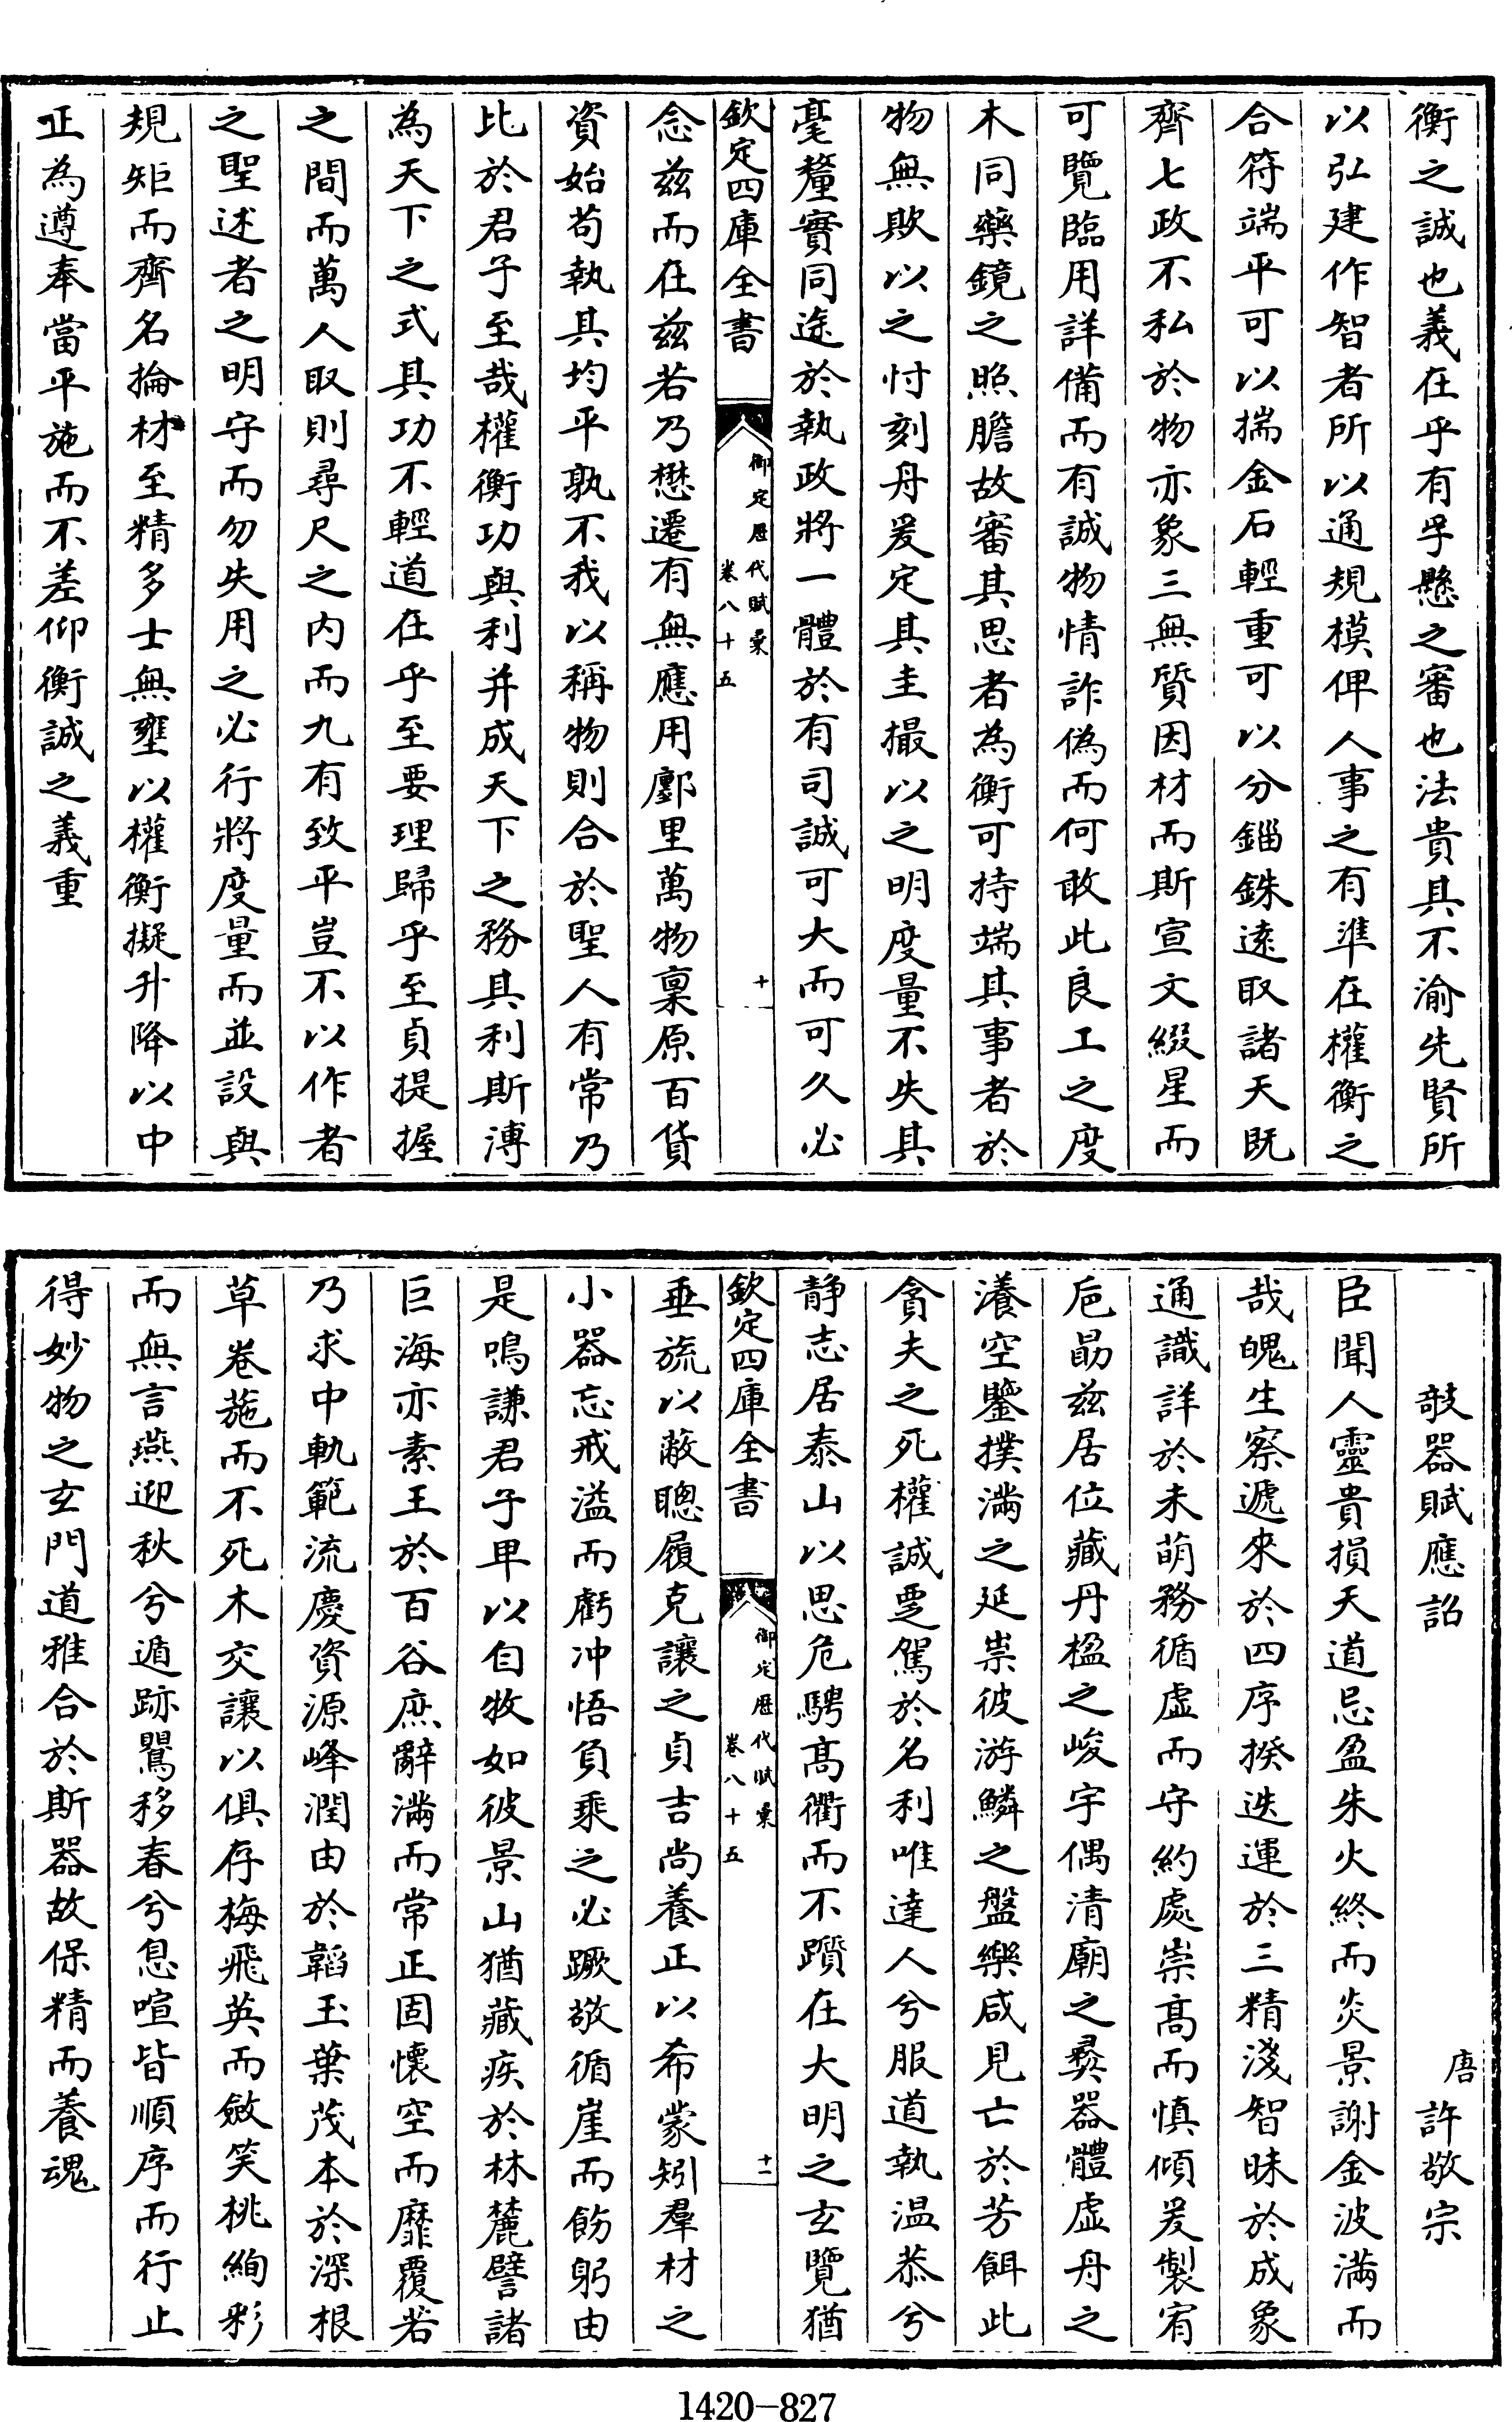 衡之誠也義在乎有孚懸之審也法貴具不渝先賢所
以弘建作智者所以通規模俾人事之有準在權衡之
合符端平可以揣金石輕重可以分錙銖遠取諸天既
齊七政不私於物亦象三無質因材而斯宣文綴星而
可覽臨用詳備而有誠物情詐偽而何敢此良工之度
木同藥鏡之照膽故審其思者為衡可持端其事者於
物無欺以之忖刻丹爰定其圭撮以之明度量不失其
毫釐實同途於執政將一體於有司誠可大而可久必
欽定四庫全書
御定歷代賦彙
卷八十五
十
念茲而在茲若乃懋遷有無應用鄽里萬物稟原百貨
資始苟執其均平孰不我以稱物則合於聖人有常乃
比於君子至哉權衡功與利并成天下之務具利斯溥
為天下之式具功不輕道在乎至要理歸乎至貞提握
之間而萬人取則尋尺之內而九有致平豈不以作者
之聖述者之明守而勿失用之必行將度量而並設與
規矩而齊名掄材至精多士無壅以權衡擬升降以中
正為遵奉當平施而不差仰衡誠之義重
攲器賦應詔
唐許敬宗
臣聞人靈貴損天道忌盈朱火終而炎景謝金波滿而
哉魄生察遞來於四序揆迭運於三精淺智昧於成象
通識詳於未萌務循虛而守約處崇髙而慎傾爰製宥
巵勗茲居位藏丹楹之峻宇偶清廟之彛器體虛舟之
瀁空鑒撲滿之延祟彼游鱗之盤樂咸見亡於芳餌此
貪夫之死權誠覂駕於名利唯達人兮服道執温恭兮
静志居泰山以思危騁髙衢而不躓在大明之玄覽猶
欽定四庫全書
御定歷代賦彙
卷八十五
十一
垂旒以蔽聰履克讓之貞吉尚養正以希蒙矧羣材之
小器忘戒溢而虧冲悟負乘之必蹶敬循崖而飭躬由
是鳴謙君子卑以自牧如彼景山猶藏疾於林麓譬諸
巨海亦素王於百谷庶辭滿而常正固懷空而靡覆若
乃求中軌範流慶資源峰潤由於韜玉葉茂本於深根
草卷葹而不死木交讓以俱存梅飛英而斂笑桃絢彩
而無言燕迎秋兮遁跡鷖移春兮息喧皆順序而行止
得妙物之玄門道雅合於斯器故保精而養魂
1420-827